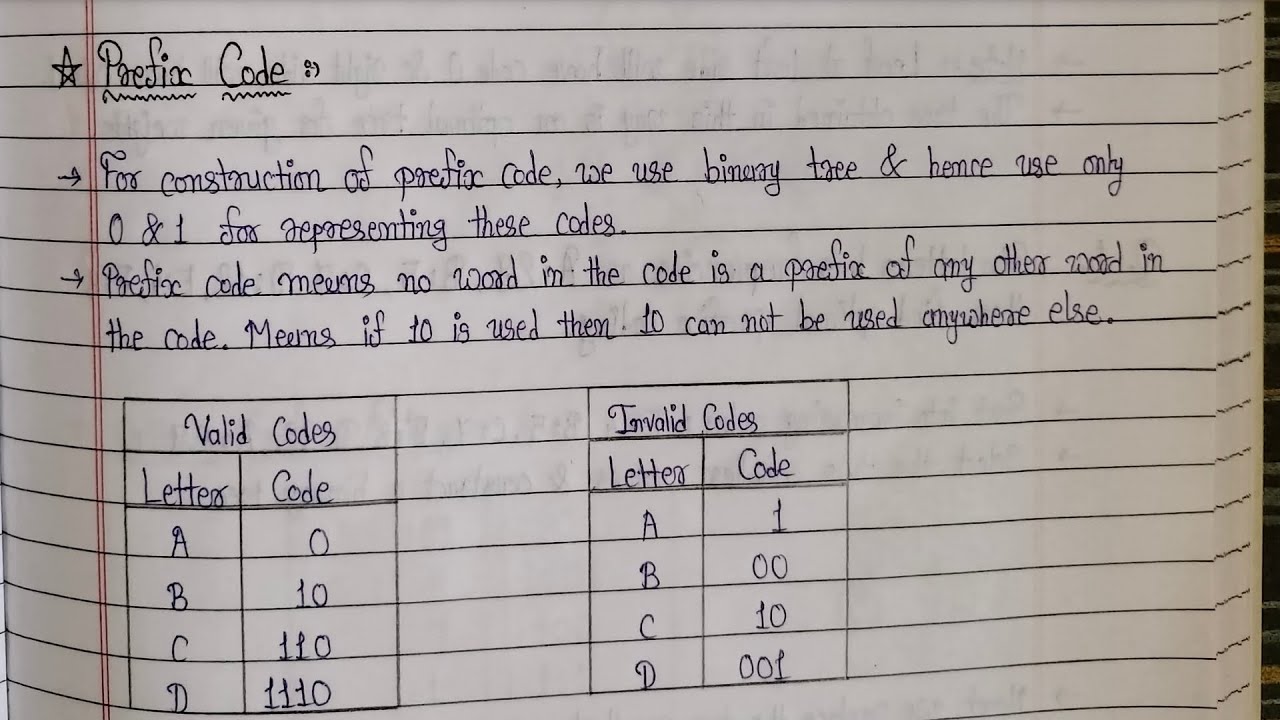 ☆ Prefix Code :-
→ For construction of prefix code, we use binary tree & hence use only
0 & 1 for representing these codes.
→ Prefix code means no word in the code is a prefix of any other word in
the code. Means if 10 is used then 10 can not be used anywhere else.
Valid Codes
Letter Code
A 0
B 10
C 110
D 1110
Invalid Codes
Letter Code
A 1
B 00
C 10
D 001